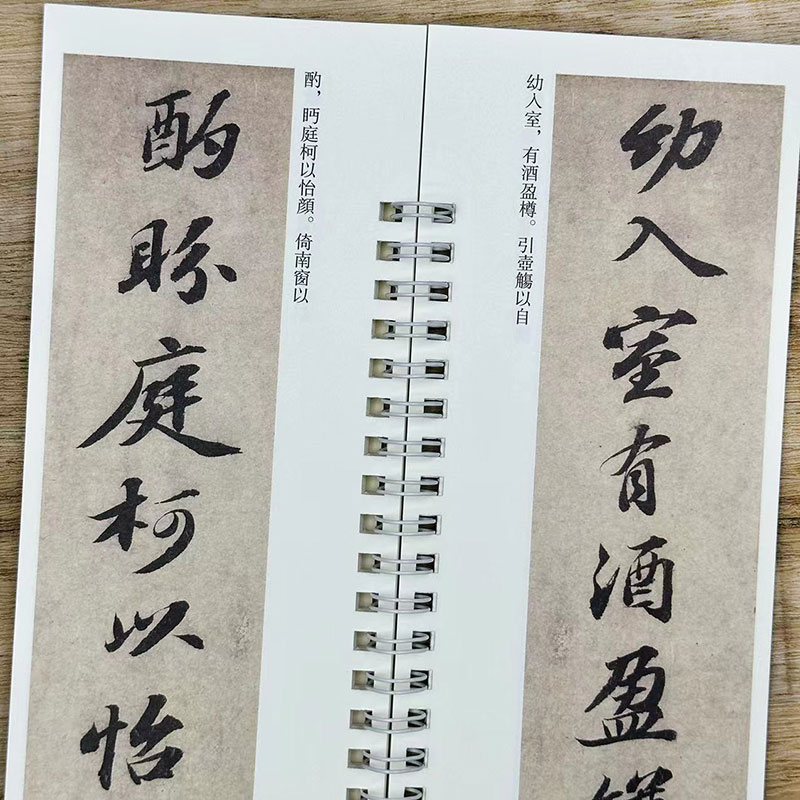 幼入室有酒盈
幼入室，有酒盈樽。引壺觴以自
酌，眄庭柯以怡顏。倚南窗以
酌盼庭柯以怡